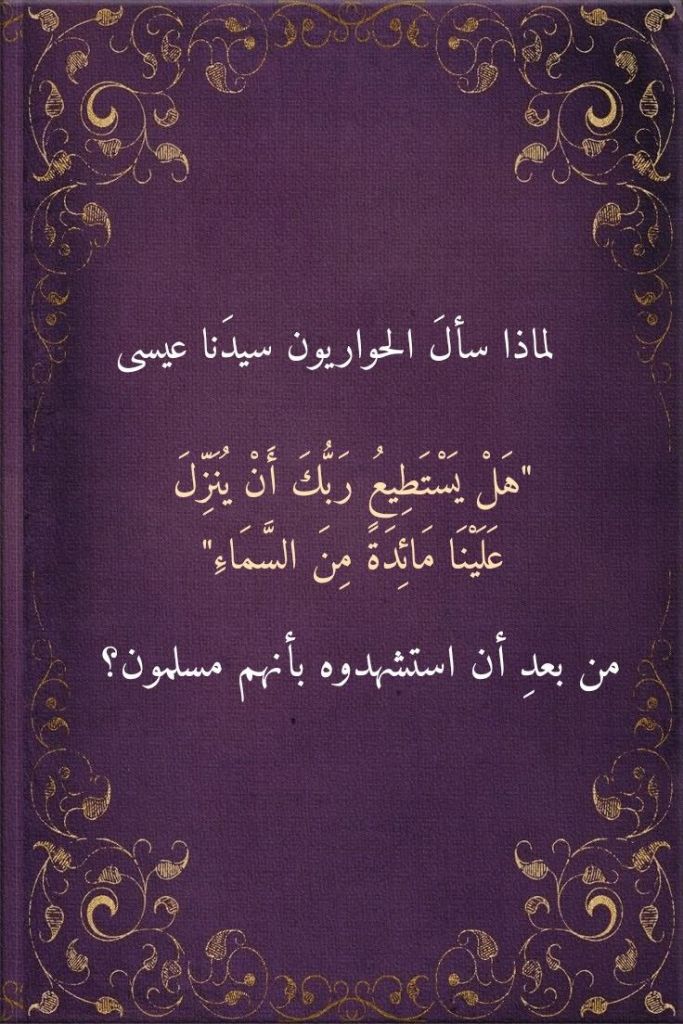 لماذا سألَ الحواريون سيدَنا عيسى
"هَلْ يَسْتَطِيعُ رَبُّكَ أَنْ يُنَزِّلَ
عَلَيْنَا مَائِدَةً مِنَ السَّمَاءِ"
من بعدِ أن استشهدوه بأنهم مسلمون؟